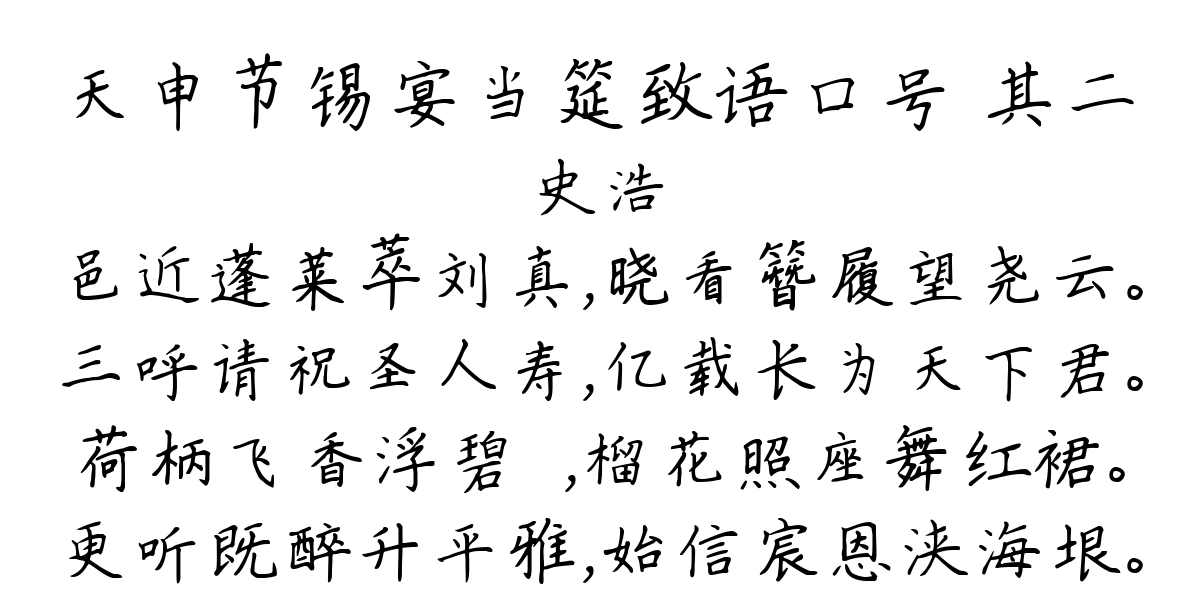 天申节锡宴当筵致语口号 其二
史浩
邑近蓬莱萃刘真,晓看簪履望尧云。
三呼请祝圣人寿,亿载长为天下君。
荷柄飞香浮碧 ,榴花照座舞红裙。
更听既醉升平雅,始信宸恩浃海垠。